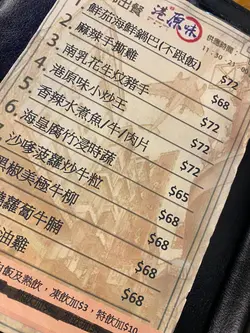 出餐 港原味 供應時間:
11:30
1. 鮮茄海鮮鍋巴(不跟飯) $72
2. 麻辣手撕雞 $72
3. 南乳花生炆豬手 $72
4. 港原味小炒王 $72
5. 香辣水煮魚/牛/肉片 $72
6. 海皇腐竹浸時蔬 $65
沙嗲菠蘿炒牛粒 $68
黑椒美極牛柳 $68
蘿蔔牛腩 $68
油雞 $68
白飯及熱飲，凍飲加$3，特飲加$10